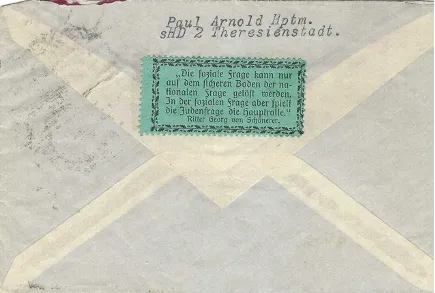 Paul Arnold Hptm.
sHD 2 Theresienstadt.
„Die soziale Frage kann nur
auf dem sicheren Boden der na-
tionalen Frage gelöst werden.
In der sozialen Frage aber spielt
die Judenfrage die Hauptrolle.“
Ritter Georg von Schönerer.